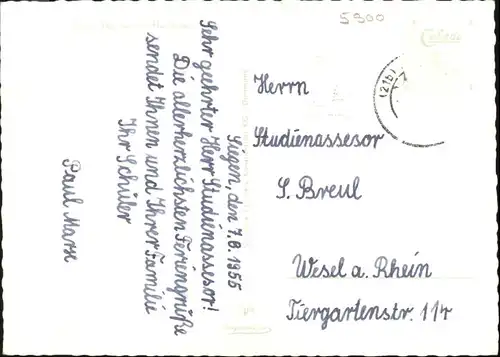 5900
Siegen, den 7.8.1955
Sehr geehrter Herr Studienassesor!
Die allerherzlichsten Feriengrüße
sendet Ihnen und Ihrer Familie
Ihr Schüler
Paul Marx
(21b)
Herrn
Studienassesor
S. Breul
Wesel a. Rhein
Tiergartenstr. 114